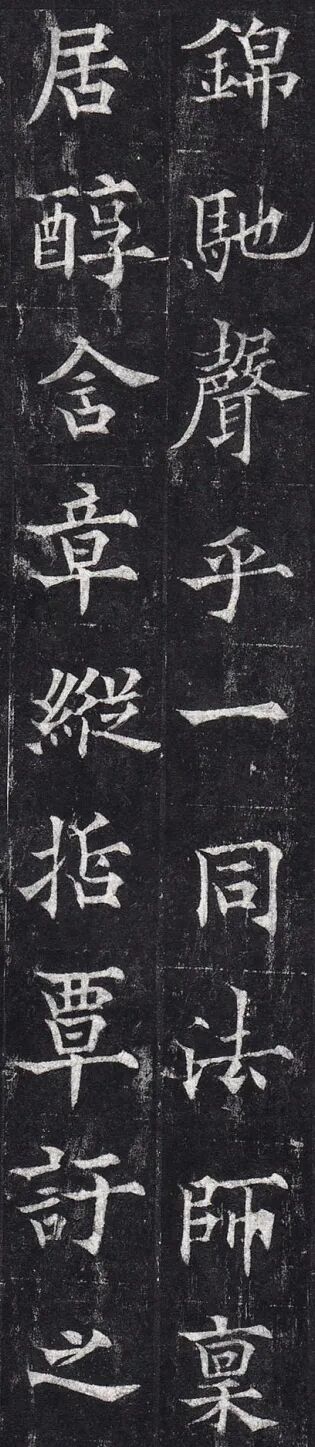 錦馳聲乎一同法師稟
居醇含章縱指覃訏之